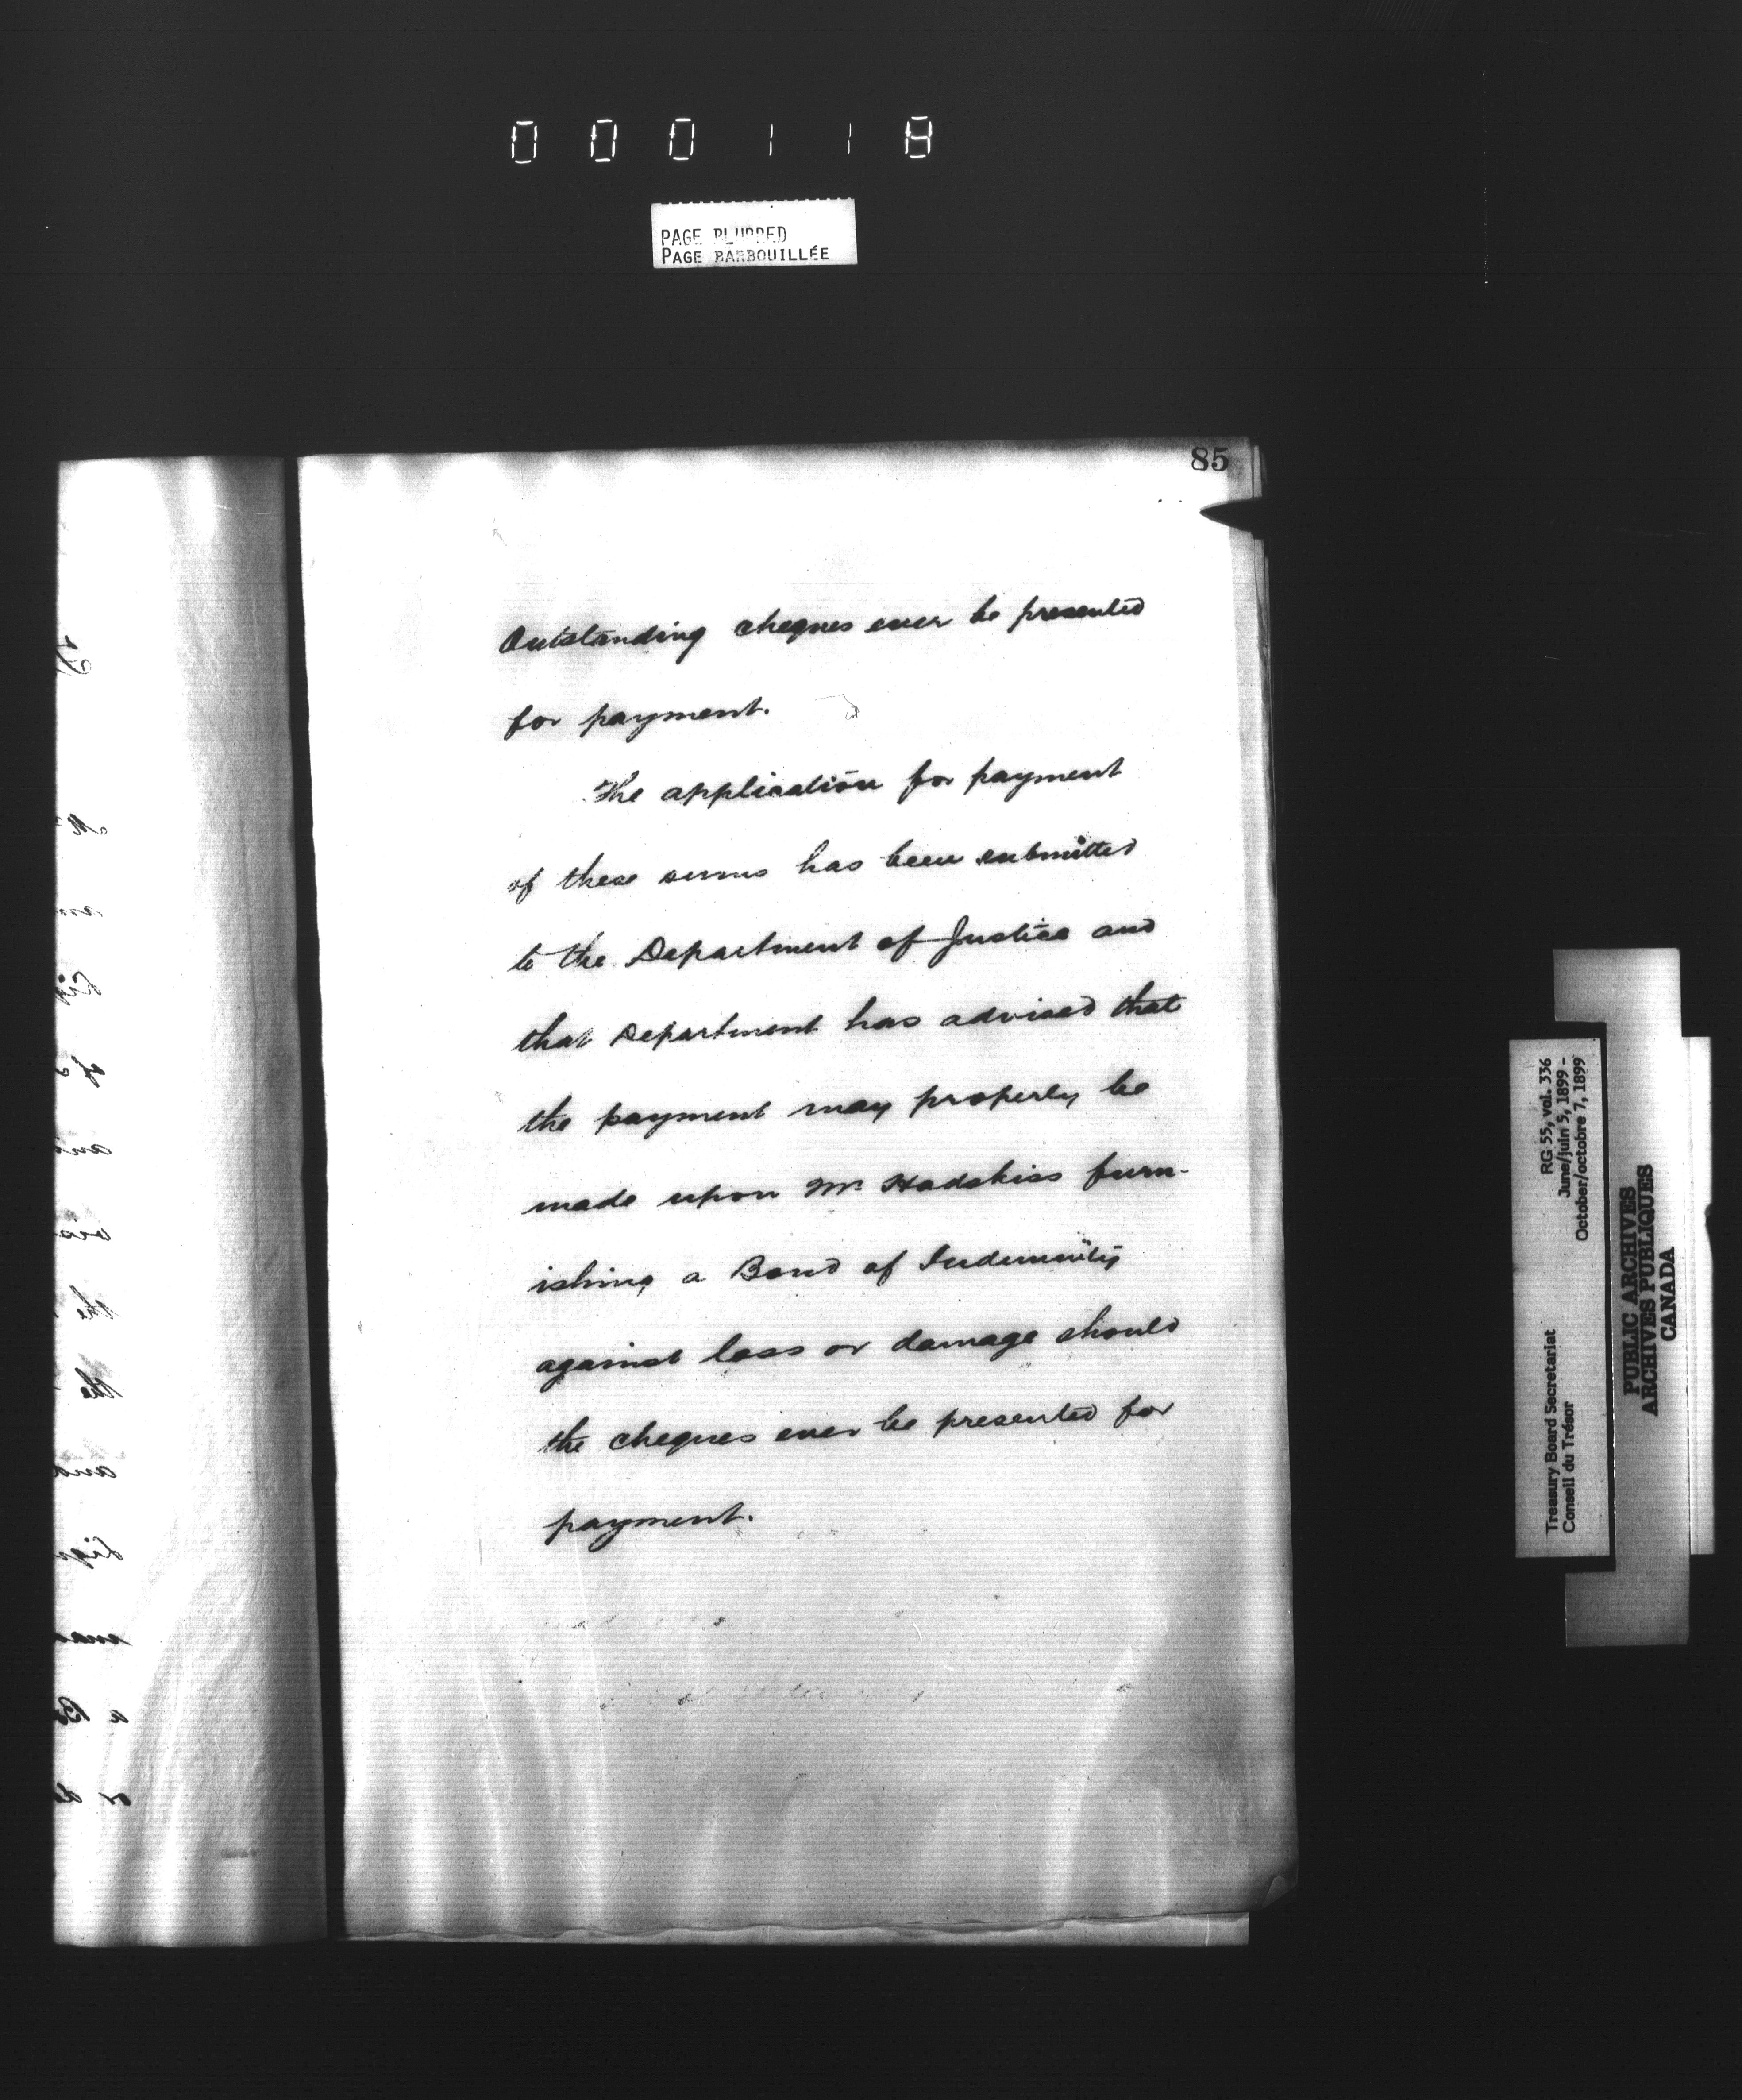 000118
PAGE BLURRED
PAGE BARBOUILLÉE
85
Outstanding cheques ever be presented
for payment.
The application for payment
of these sums has been submitted
to the Department of Justice and
that Department has advised that
the payment may properly be
made upon Mr Hadskiss furn-
ishing a Bond of Indemnity
against loss or damage should
the cheques ever be presented for
payment.
RG 55, vol. 336
June/juin 5, 1899 -
October/octobre 7, 1899
Treasury Board Secretariat
Conseil du Trésor
PUBLIC ARCHIVES
ARCHIVES PUBLIQUES
CANADA